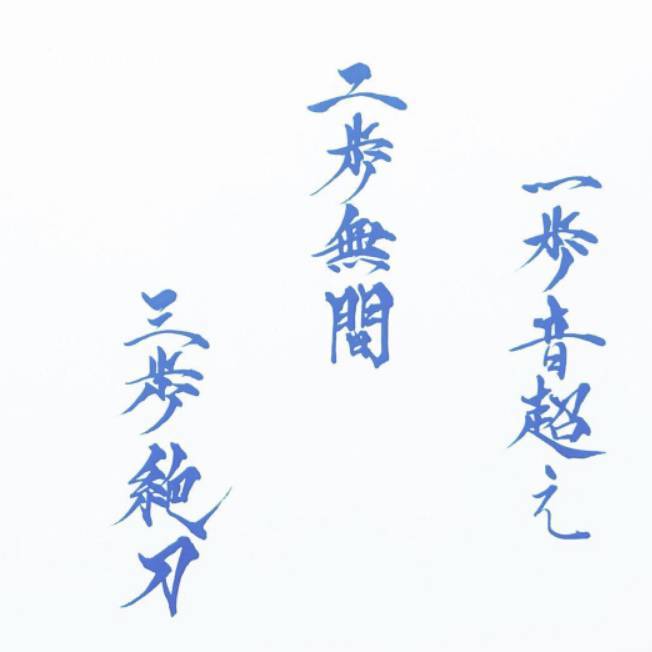 一歩音超え
二歩無間
三歩絶刀